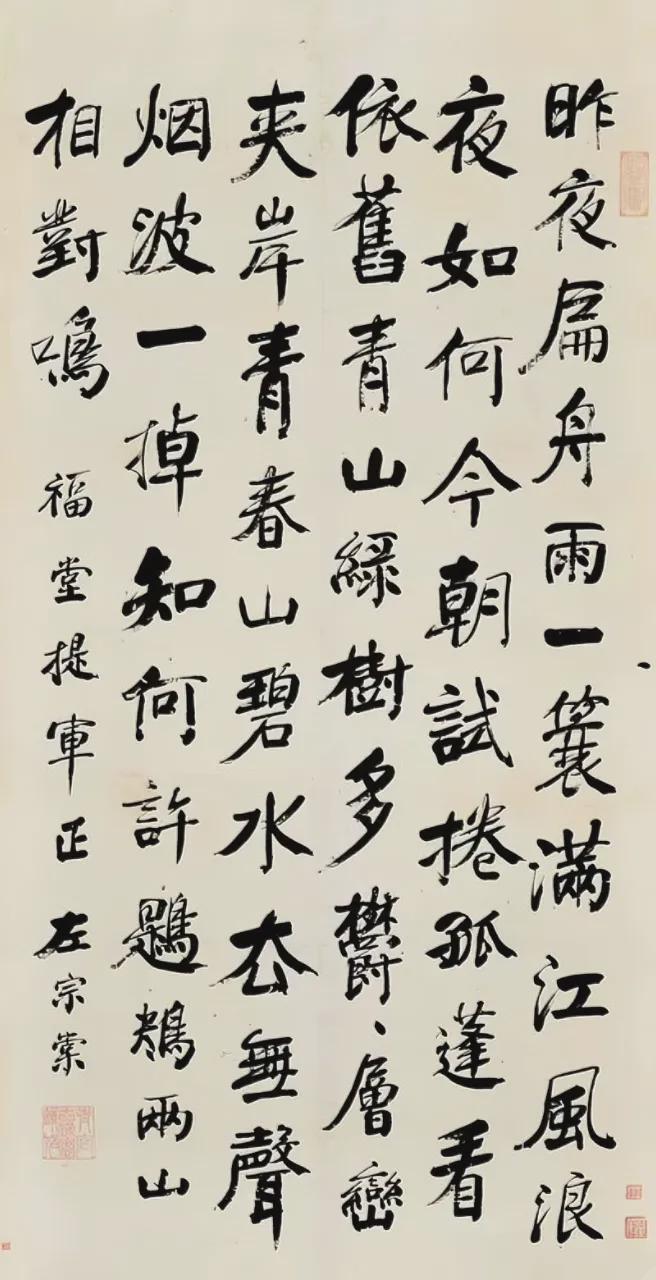 昨夜扁舟雨一蓑滿江風浪
夜如何今朝試捲孤蓬看
依舊青山綠樹多鬱、層巒
夾岸青春山碧水去無聲
烟波一掉知何許鶗鴂兩山
相對鳴
福堂提軍正
左宗棠